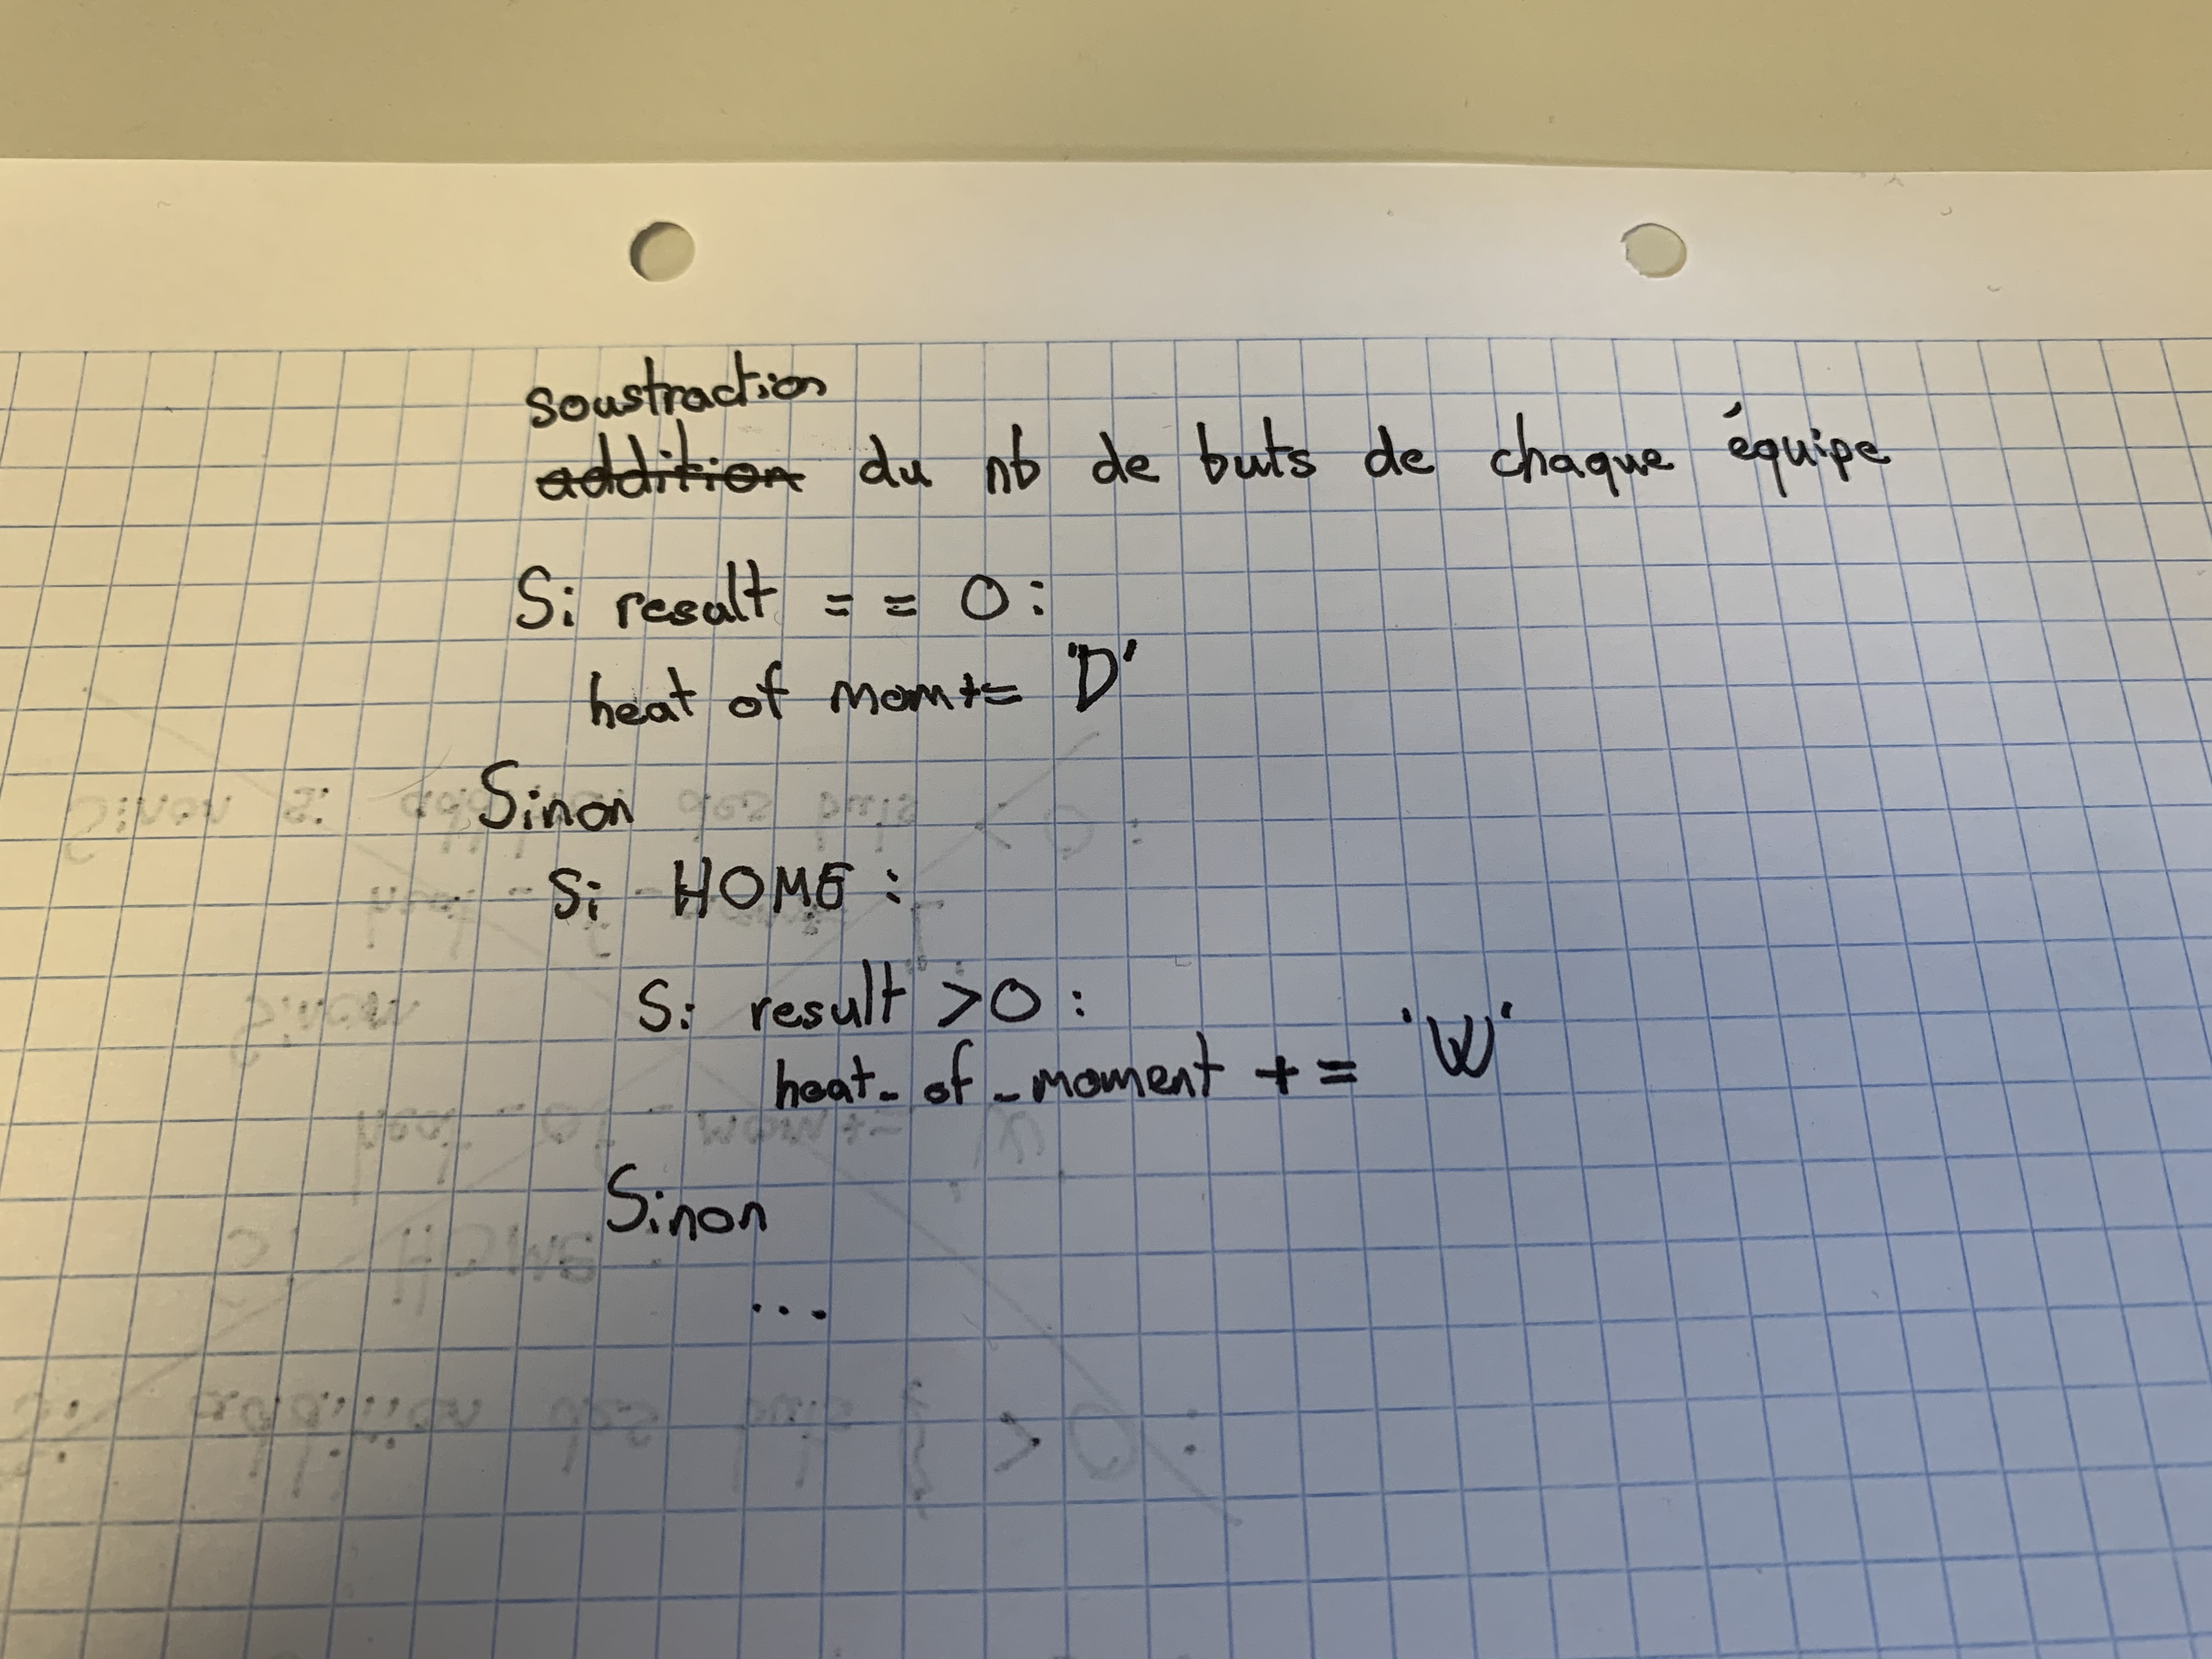 soustraction
addition du nb de buts de chaque équipe
Si result == 0:
heat of mom+= 'D'
Sinon
Si HOME :
Si result >0 :
heat_of_moment += 'W'
Sinon
...